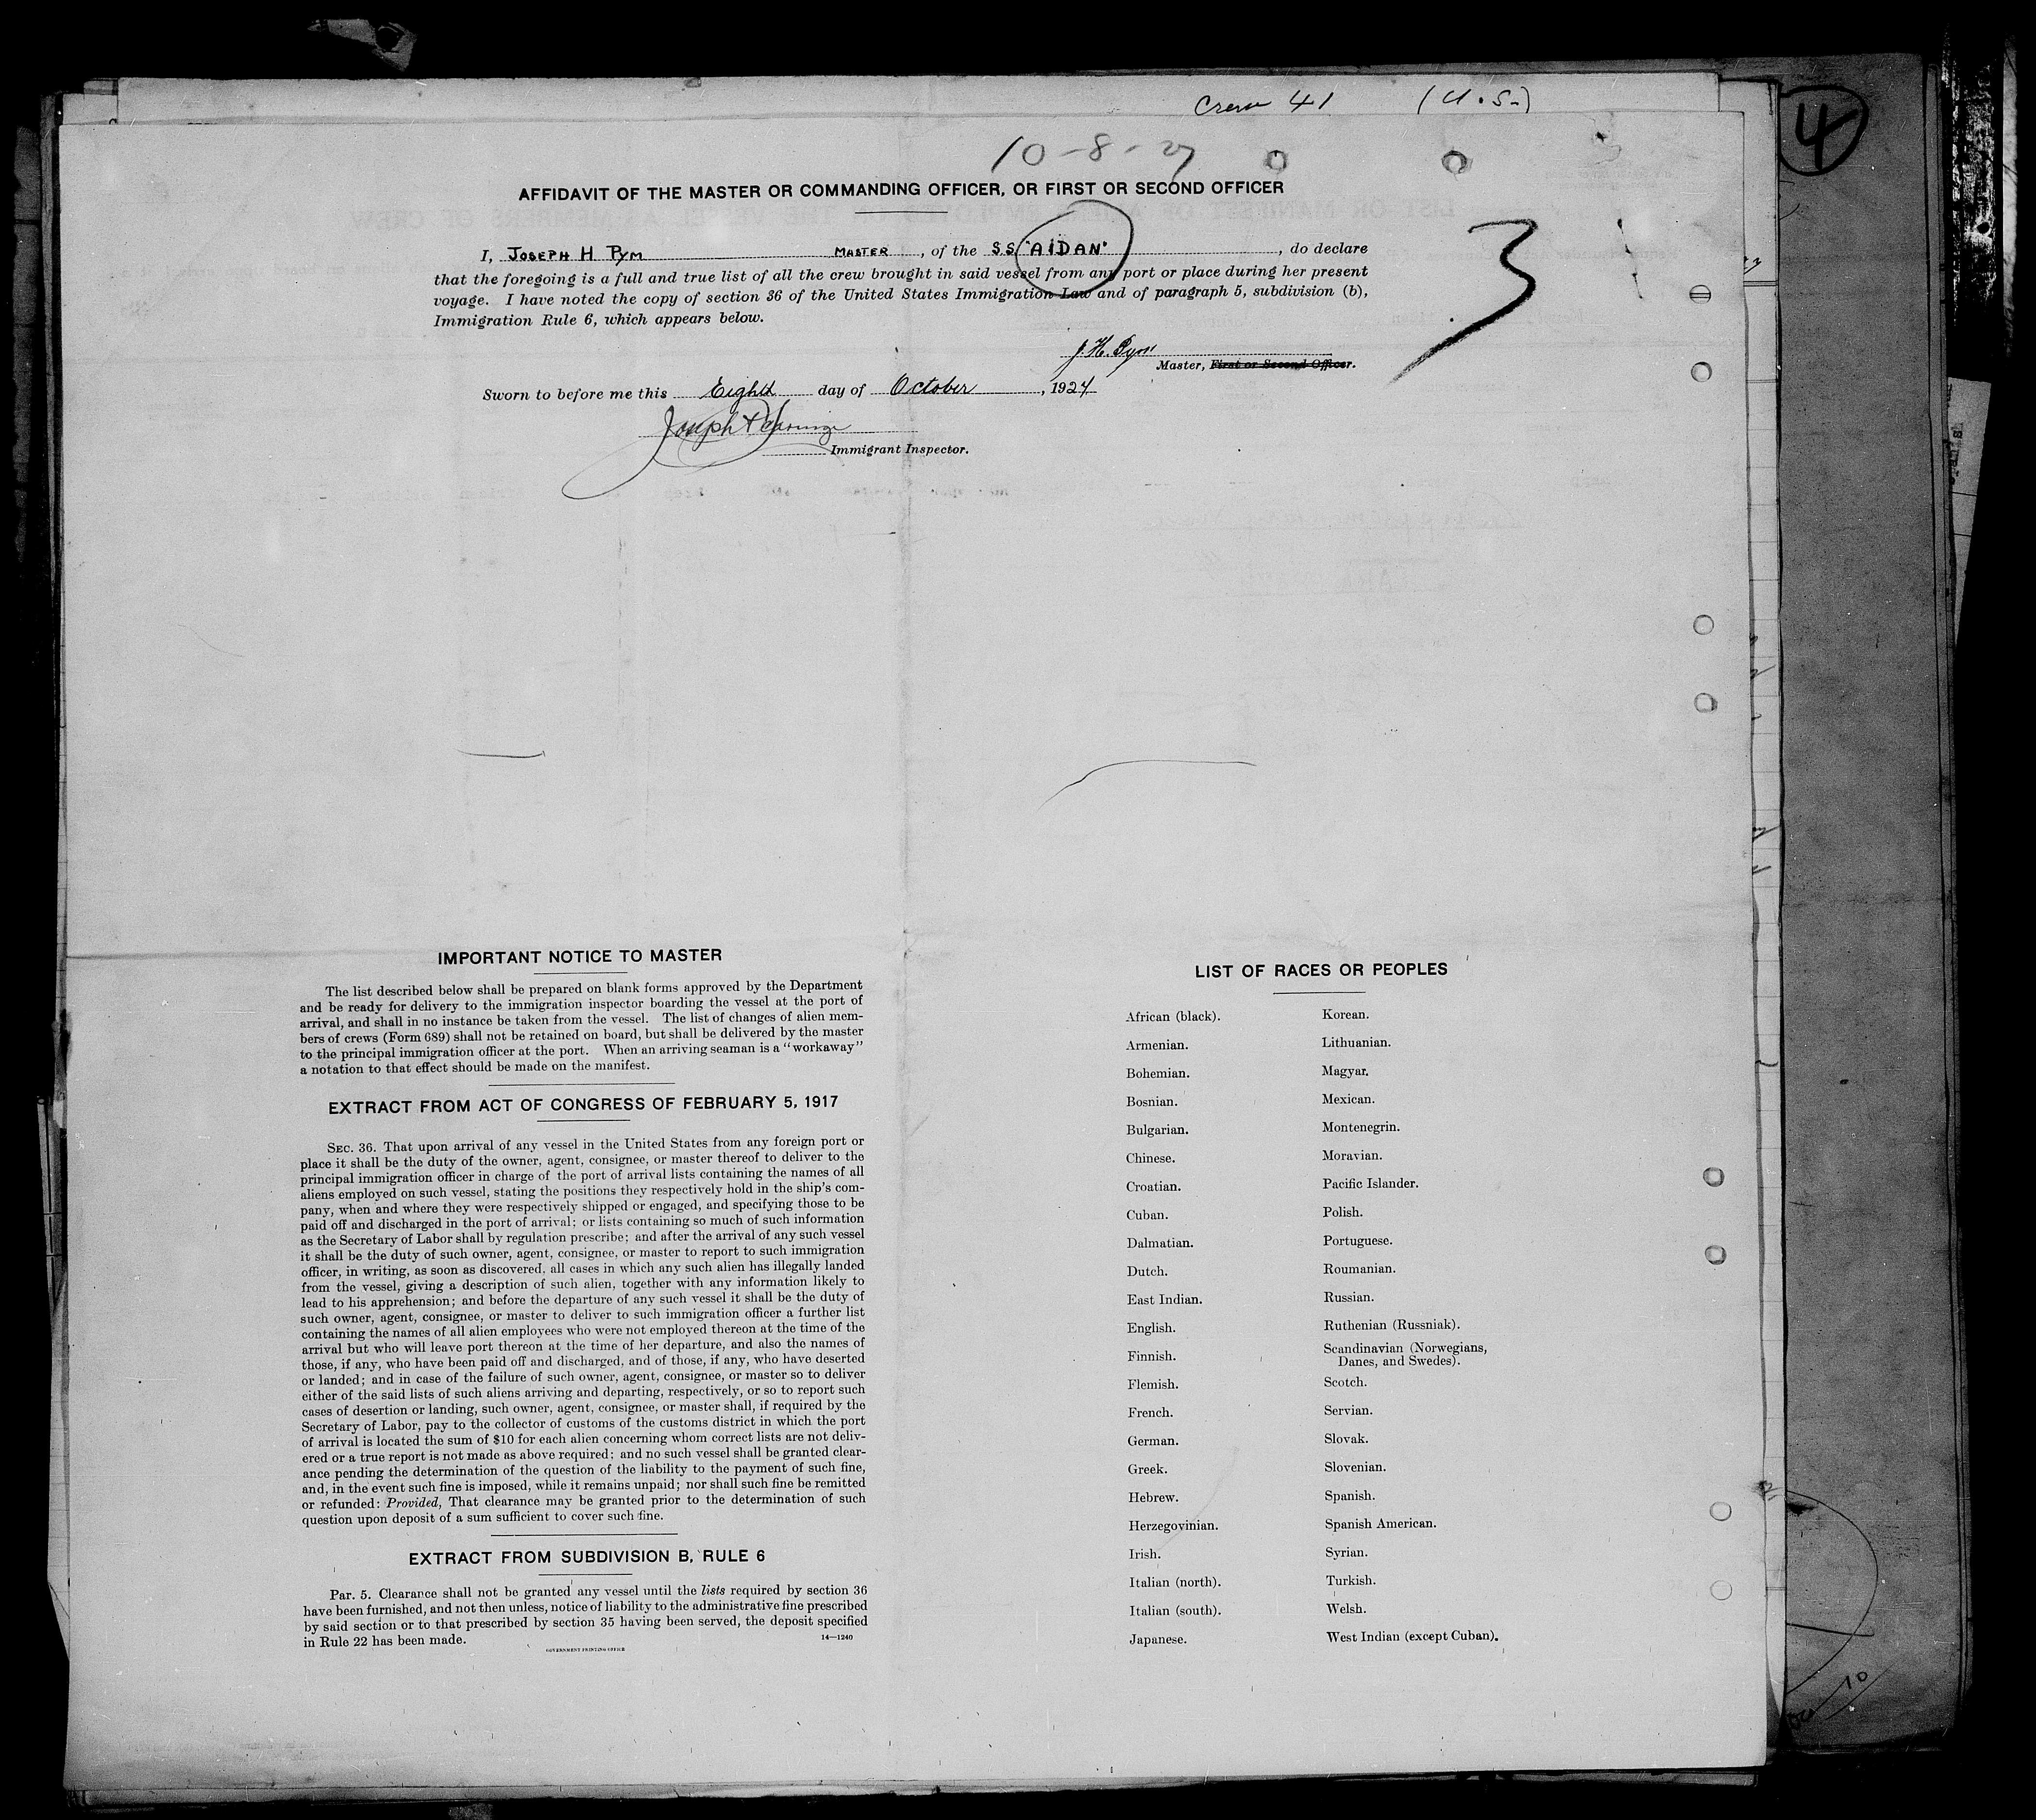 Crew 41 (U.S.)
4
10-8-24
AFFIDAVIT OF THE MASTER OR COMMANDING OFFICER, OR FIRST OR SECOND OFFICER
I, JOSEPH H PYM MASTER, of the S.S "AIDAN", do declare
that the foregoing is a full and true list of all the crew brought in said vessel from any port or place during her present
voyage. I have noted the copy of section 36 of the United States Immigration Law and of paragraph 5, subdivision (b),
Immigration Rule 6, which appears below.
3
J. H. Pym
Master, First or Second Officer.
Sworn to before me this Eighth day of October, 1924
Joseph
Immigrant Inspector.
IMPORTANT NOTICE TO MASTER
The list described below shall be prepared on blank forms approved by the Department
and be ready for delivery to the immigration inspector boarding the vessel at the port of
arrival, and shall in no instance be taken from the vessel. The list of changes of alien mem-
bers of crews (Form 689) shall not be retained on board, but shall be delivered by the master
to the principal immigration officer at the port. When an arriving seaman is a "workaway"
a notation to that effect should be made on the manifest.
EXTRACT FROM ACT OF CONGRESS OF FEBRUARY 5, 1917
SEC. 36. That upon arrival of any vessel in the United States from any foreign port or
place it shall be the duty of the owner, agent, consignee, or master thereof to deliver to the
principal immigration officer in charge of the port of arrival lists containing the names of all
aliens employed on such vessel, stating the positions they respectively hold in the ship's com-
pany, when and where they were respectively shipped or engaged, and specifying those to be
paid off and discharged in the port of arrival; or lists containing so much of such information
as the Secretary of Labor shall by regulation prescribe; and after the arrival of any such vessel
it shall be the duty of such owner, agent, consignee, or master to report to such immigration
officer, in writing, as soon as discovered, all cases in which any such alien has illegally landed
from the vessel, giving a description of such alien, together with any information likely to
lead to his apprehension; and before the departure of any such vessel it shall be the duty of
such owner, agent, consignee, or master to deliver to such immigration officer a further list
containing the names of all alien employees who were not employed thereon at the time of the
arrival but who will leave port thereon at the time of her departure, and also the names of
those, if any, who have been paid off and discharged, and of those, if any, who have deserted
or landed; and in case of the failure of such owner, agent, consignee, or master so to deliver
either of the said lists of such aliens arriving and departing, respectively, or so to report such
cases of desertion or landing, such owner, agent, consignee, or master shall, if required by the
Secretary of Labor, pay to the collector of customs of the customs district in which the port
of arrival is located the sum of $10 for each alien concerning whom correct lists are not deliv-
ered or a true report is not made as above required; and no such vessel shall be granted clear-
ance pending the determination of the question of the liability to the payment of such fine,
and, in the event such fine is imposed, while it remains unpaid; nor shall such fine be remitted
or refunded: Provided, That clearance may be granted prior to the determination of such
question upon deposit of a sum sufficient to cover such fine.
EXTRACT FROM SUBDIVISION B, RULE 6
Par. 5. Clearance shall not be granted any vessel until the lists required by section 36
have been furnished, and not then unless, notice of liability to the administrative fine prescribed
by said section or to that prescribed by section 35 having been served, the deposit specified
in Rule 22 has been made.
14—1240
GOVERNMENT PRINTING OFFICE
LIST OF RACES OR PEOPLES
African (black).
Armenian.
Bohemian.
Bosnian.
Bulgarian.
Chinese.
Croatian.
Cuban.
Dalmatian.
Dutch.
East Indian.
English.
Finnish.
Flemish.
French.
German.
Greek.
Hebrew.
Herzegovinian.
Irish.
Italian (north).
Italian (south).
Japanese.
Korean.
Lithuanian.
Magyar.
Mexican.
Montenegrin.
Moravian.
Pacific Islander.
Polish.
Portuguese.
Roumanian.
Russian.
Ruthenian (Russniak).
Scandinavian (Norwegians,
Danes, and Swedes).
Scotch.
Servian.
Slovak.
Slovenian.
Spanish.
Spanish American.
Syrian.
Turkish.
Welsh.
West Indian (except Cuban).
10